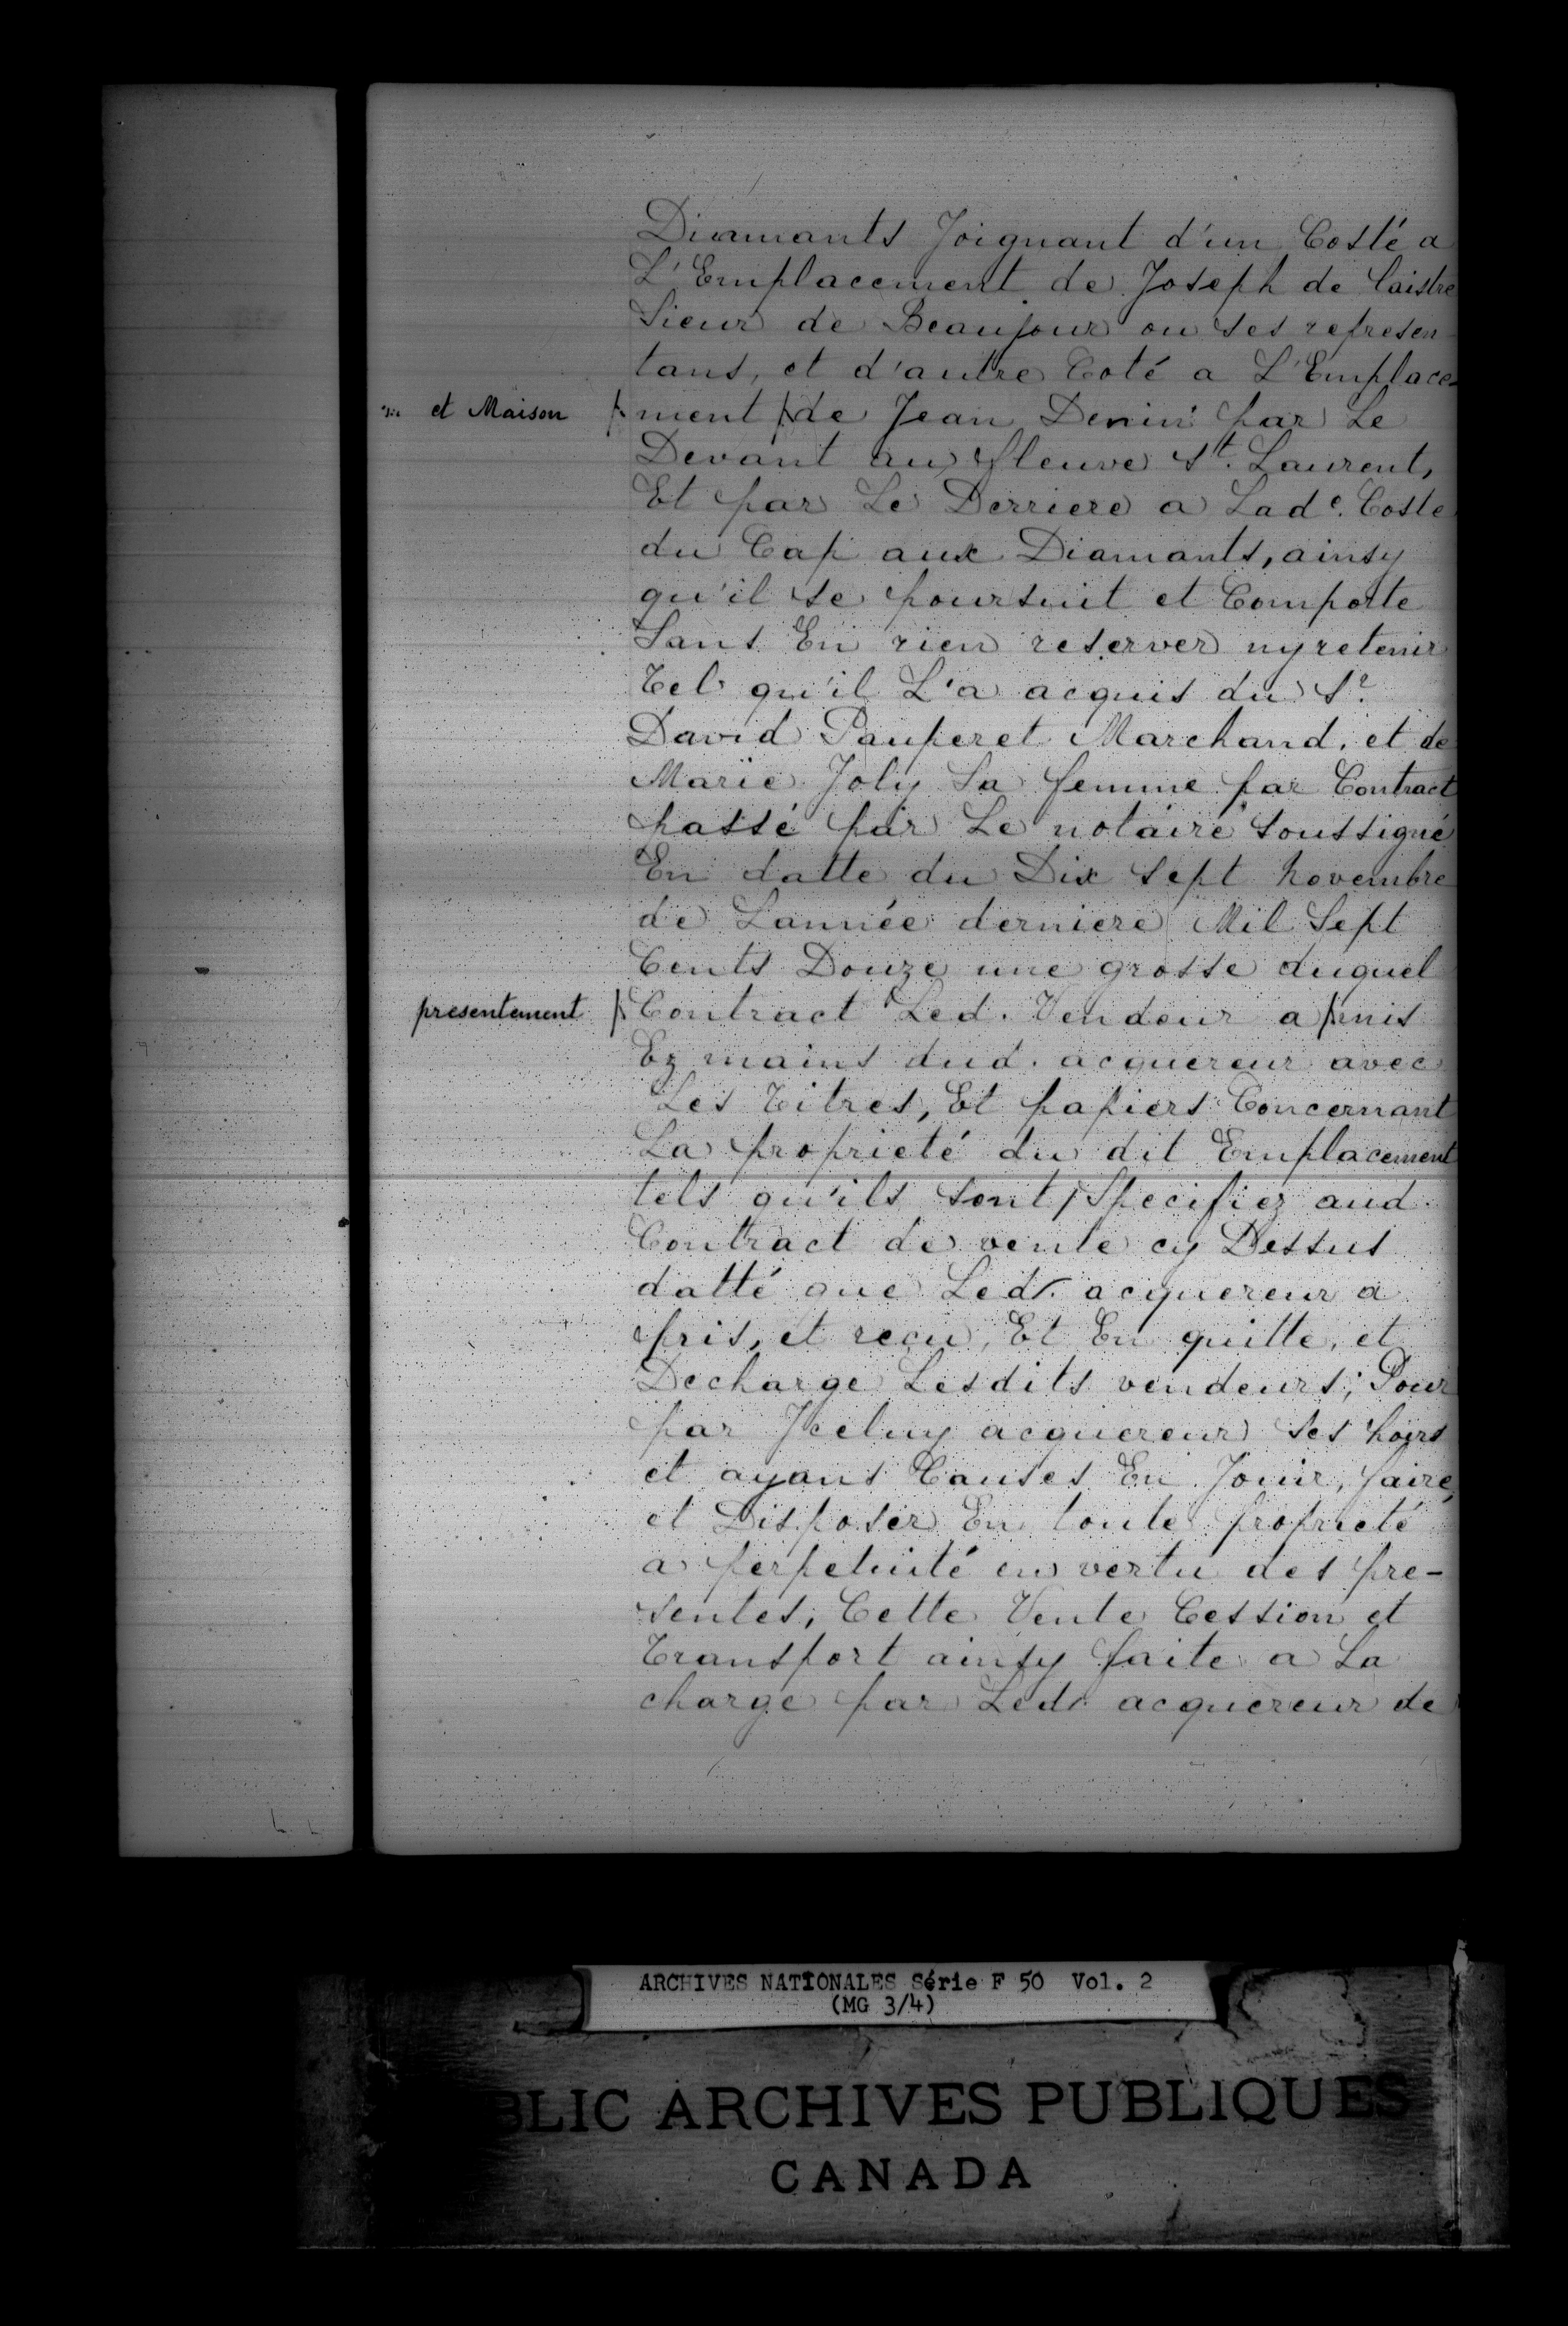 Diamants Joignant d'un Costé a
L'Emplacement de Joseph de Laistre
Sieur de Beaujour ou ses represen-
tans, et d'autre Coté a L'Emplace-
et Maison ment de Jean Denin par Le
Devant au fleuve St. Laurent,
Et par Le Derriere a Lade. Coste
du Cap aux Diamants, ainsy
qu'il se poursuit et Comporte
Sans En rien reserver ny retenir
Tel qu'il L'a acquis du Sr.
David Pauperet Marchand, et de
Marie Joly Sa femme par Contract
passé par Le notaire soussigné
En datte du Dix sept Novembre
de Lannée derniere Mil Sept
Cents Douze une grosse duquel
presentement Contract Led. Vendeur a mis
Ez mains dud. acquereur avec
Les Titres, Et papiers Concernant
La proprieté du dit Emplacement
tels qu'ils sont Specifiez aud.
Contract de vente cy Dessus
datté que Led. acquereur a
pris, et reçu, Et En quitte, et
Decharge Lesdits vendeurs; Pour
par Jceluy acquereur ses hoirs
et ayans Causes En Jouir, faire,
et Disposer En toute proprieté
a perpetuité en vertu des pre-
sentes, Cette Vente Cession et
Transport ainsy faite a La
charge par Led. acquereur de
ARCHIVES NATIONALES Série F 50 Vol. 2
(MG 3/4)
BLIC ARCHIVES PUBLIQUES
CANADA